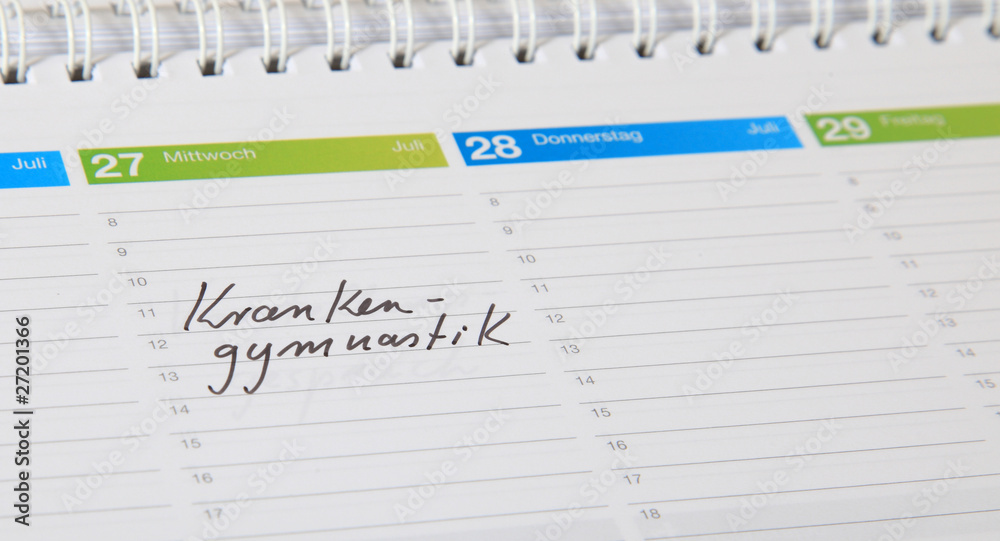 Juli
27 Mittwoch Juli
28 Donnerstag Juli
29 Freitag
8
9
10
11
12
13
14
15
16
17
Kranken-
gymnastik
8
9
10
11
12
13
14
15
16
17
18
8
9
10
11
12
13
14
15
Adobe Stock | #27201366